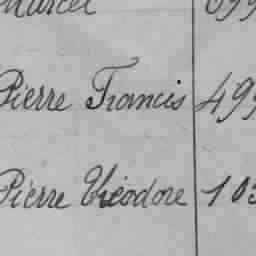 Marcel 699
Pierre Francis 499
Pierre Théodore 103